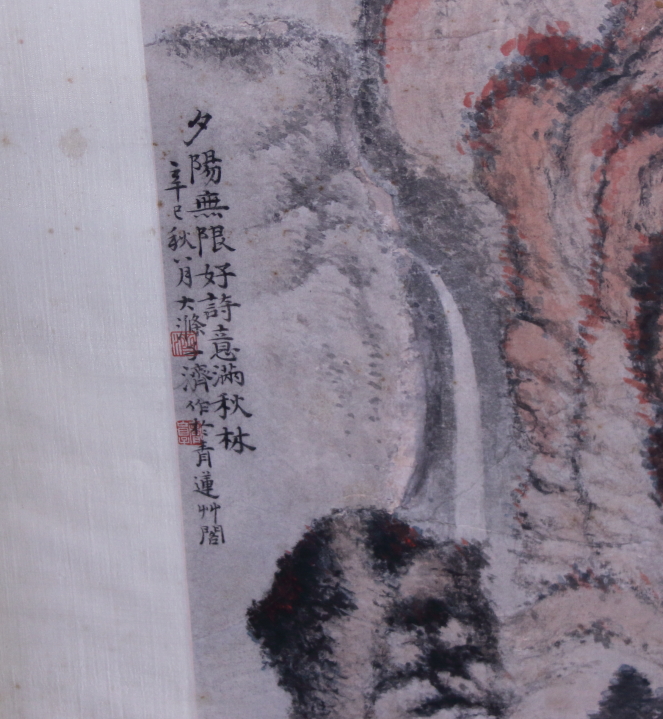 夕陽無限好詩意滿秋林
辛巳秋八月大滌子濟作於青蓮艸閣